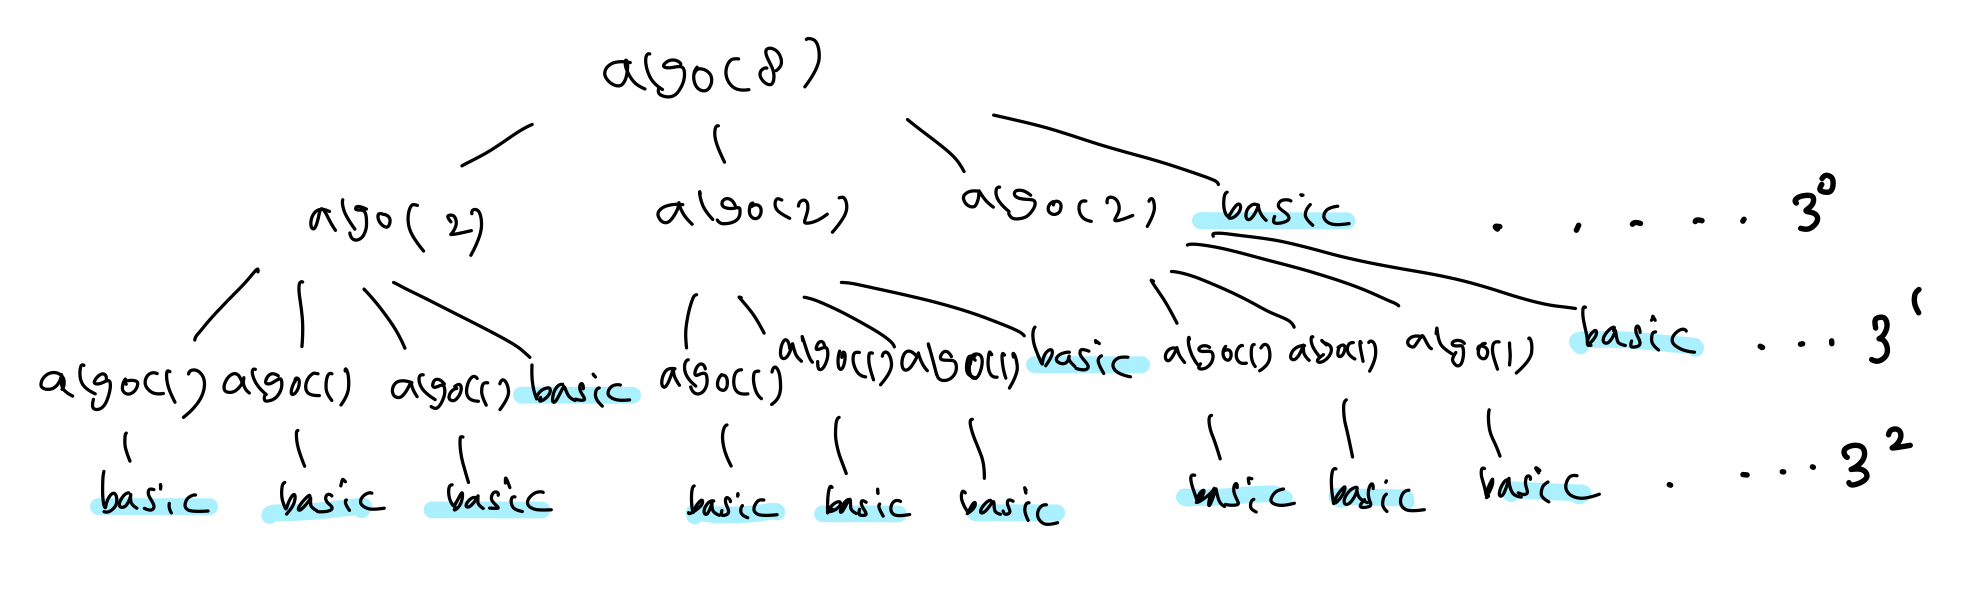 algo(8)
algo(2) algo(2) algo(2) basic ..... 3^0
algo(1) algo(1) algo(1) basic algo(1) algo(1) algo(1) basic algo(1) algo(1) algo(1) basic ... 3^1
basic basic basic basic basic basic basic basic basic .... 3^2